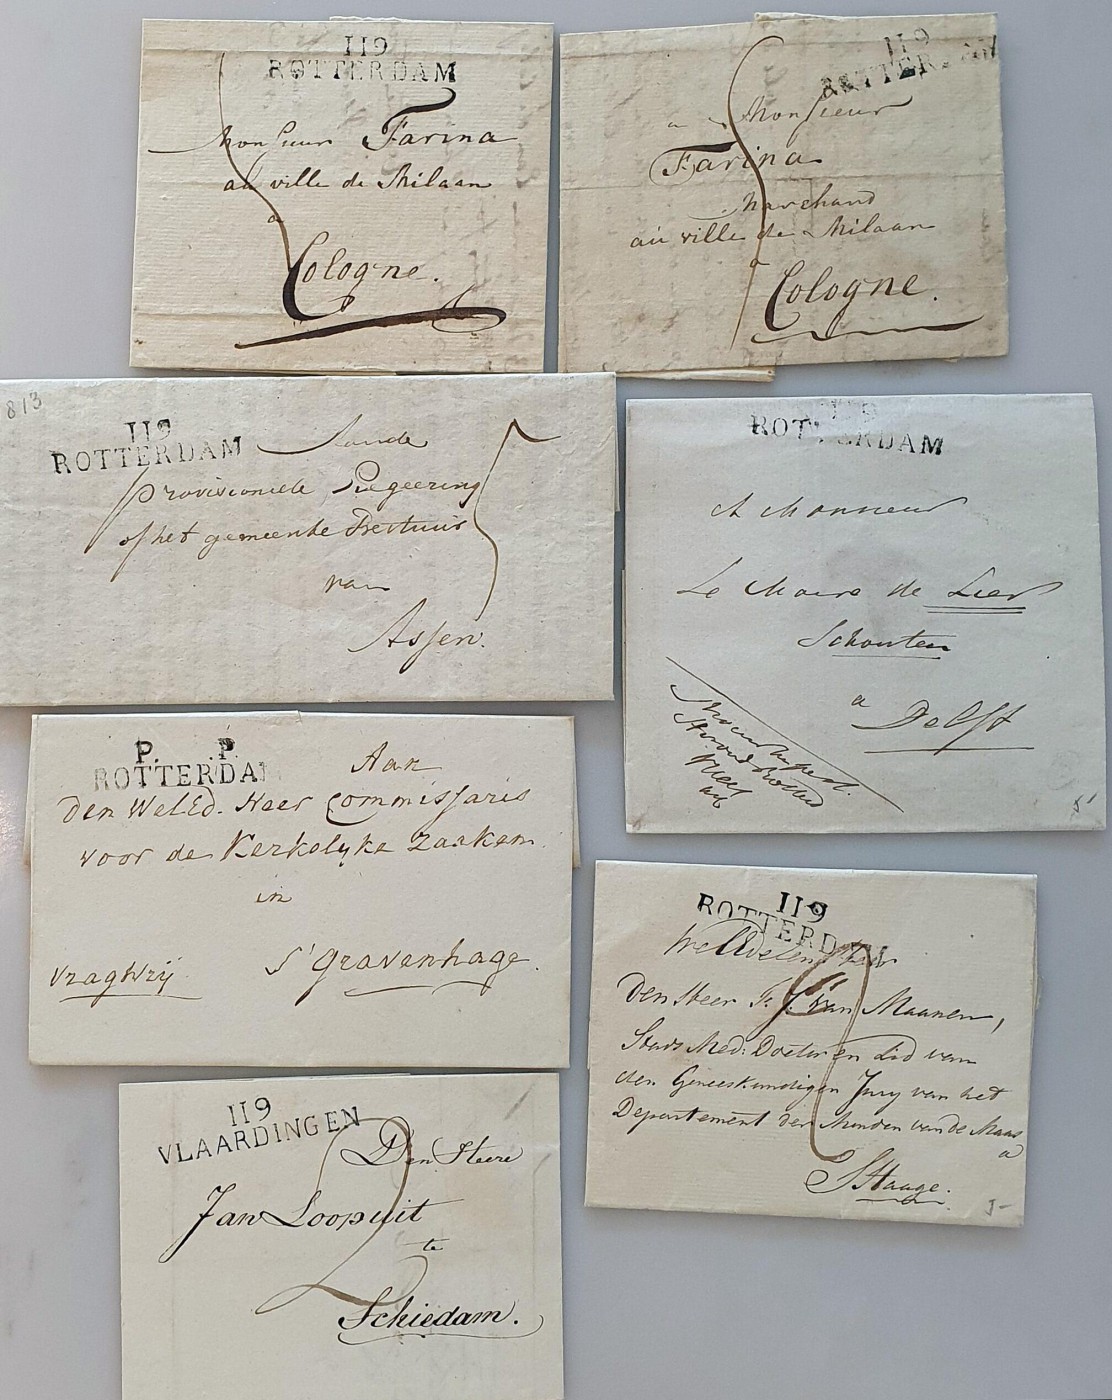 119
ROTTERDAM
Monsieur Farina
au ville de Milaan
a
Cologne.
119
ROTTERDAM
a Monsieur
Farina
Marchand
au ville de Milaan
a
Cologne.
813
119
ROTTERDAM
Aande
Provisioneele Regeering
of het gemeente Bestuur
van
Assen.
119
ROTTERDAM
A Monsieur
Le Maire de Lier
Schouten
a
Delft
5
P. P.
ROTTERDAM
Aan
den WelEd. Heer Commissaris
voor de Kerkelyke Zaaken
in
s'Gravenhage.
vragtvrij
119
ROTTERDAM
WelEdelen Heer
Den Heer P. J. van Maanen,
Stads Med: Doctor en Lid van
den Geneeskundigen Jury van het
Departement der Monden van de Maas
a
S'Haage.
119
VLAARDINGEN
Den Heere
Jan Loopuit
te
Schiedam.